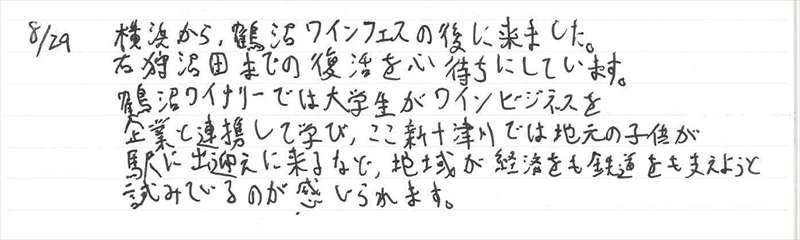 8/29 横浜から、鶴沼ワインフェスの後に来ました。
石狩沼田までの復活を心待ちにしています。
鶴沼ワイナリーでは大学生がワインビジネスを
企業と連携して学び、ここ新十津川では地元の子供が
駅に出迎えに来るなど、地域が経済をも鉄道をも支えようと
試みているのが感じられます。